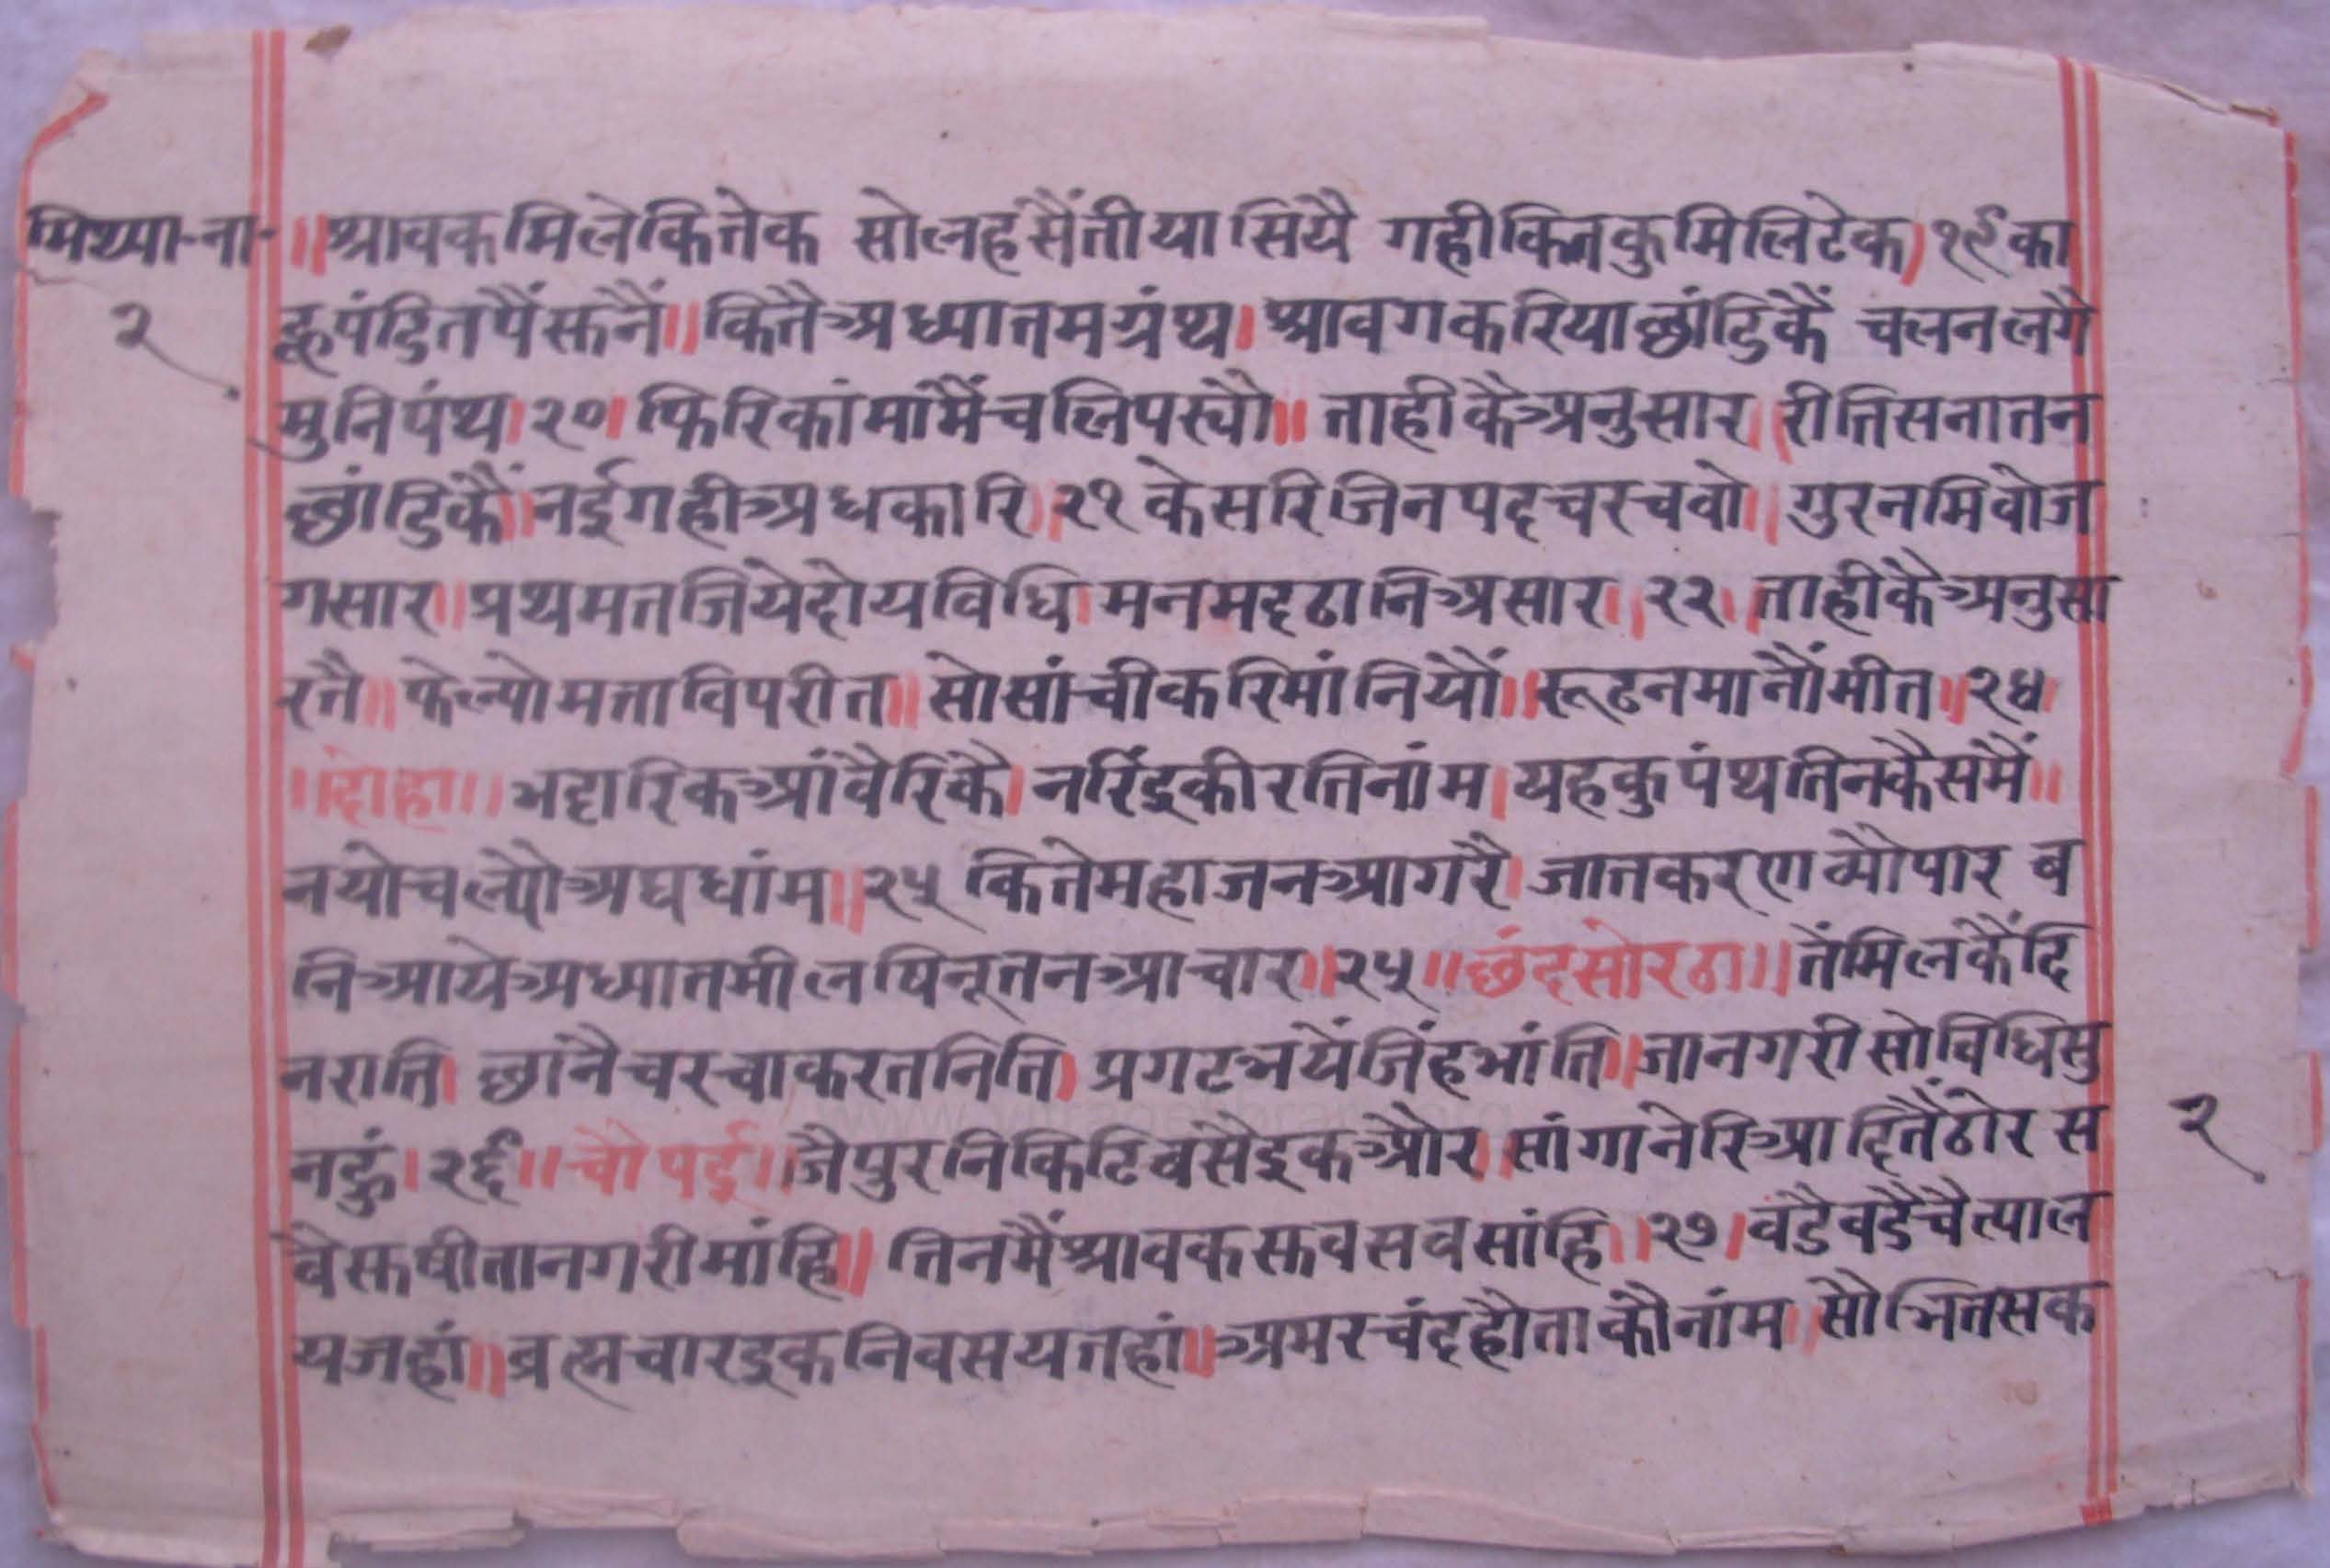 मिथ्या-ना-
२
॥श्रावकमिलेकितेक सोलहसैंतीयासियै गहीकितकुमिलिटेक।१९का
हूपंडितपैंस्तनैं॥कितैअध्यातमग्रंथ।श्रावगकरियाछांडिकैं चलनलगे
मुनिपंथ।२०।फिरिकांमांमैंचलिपस्यौ॥ताहीकैअनुसार।रीतिसनातन
छांडिकैं॥नईगहीअघकारि।२१केसरिजिनपदचरचवो॥गुरनमिवोज
गसार॥प्रथमतजियेदोयविधि।मनमदृठानिअसार।२२।ताहीकैअनुसा
रतै॥फेल्योमताविपरीत॥सोसांचीकरिमांनियौं॥रूढनमानौंमीत॥२४
॥दोहा॥भट्टारिकआंवैरिकै।नरिंद्रकीरतिनांम।यहकुपंथतिनकैसमैं॥
नयोचल्यौअघधांम॥२५ कितेमहाजनआगरै।जातकरणव्यौपार व
निआयेअध्यातमीलषिनूतनआचार॥२५॥छंदसोरठा॥तेंमिलकैंदि
नराति।छांनैचरचाकरतनिति।प्रगटभयेंजिंहभांति॥जानगरीसोविधिसु
नहुं।२६॥चौपई॥जैपुरनिकिटिवसैइकऔर।सांगानेरिआदितैंठोर स
वैस्तषीतानगरीमांहि॥तिनमैंश्रावकस्तवसवसांहि॥२७।वडैवडैचैत्याल
यजहां॥व्रह्मचारइकनिवसयतहां॥अमरचंदहौताकौनांम।सौभितसक
२